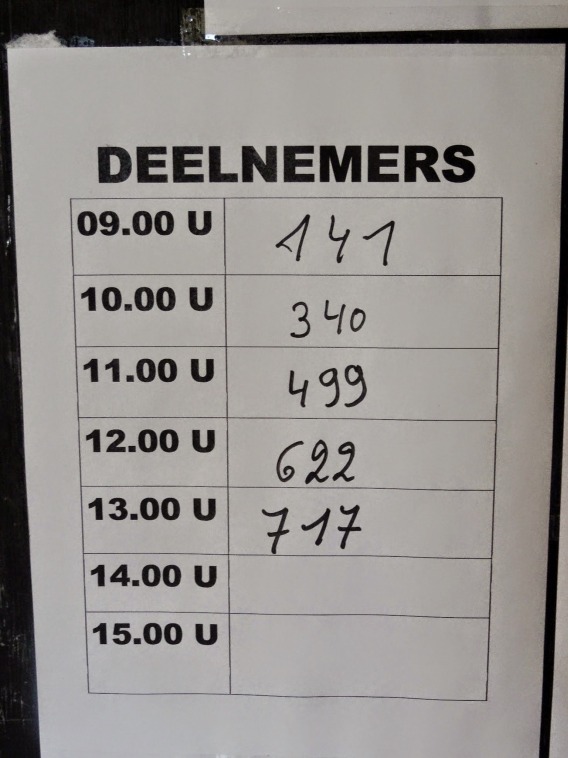 DEELNEMERS
09.00 U 141
10.00 U 340
11.00 U 499
12.00 U 622
13.00 U 717
14.00 U
15.00 U